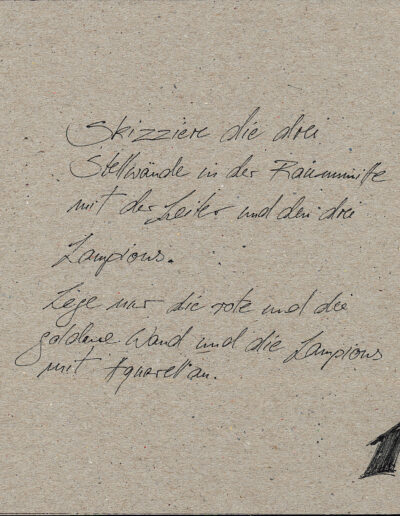 Skizziere die drei
Stellwände in der Raummitte
mit der Leiter und den drei
Lampions.
Lege nur die rote und die
goldene Wand und die Lampions
mit Aquarell an.